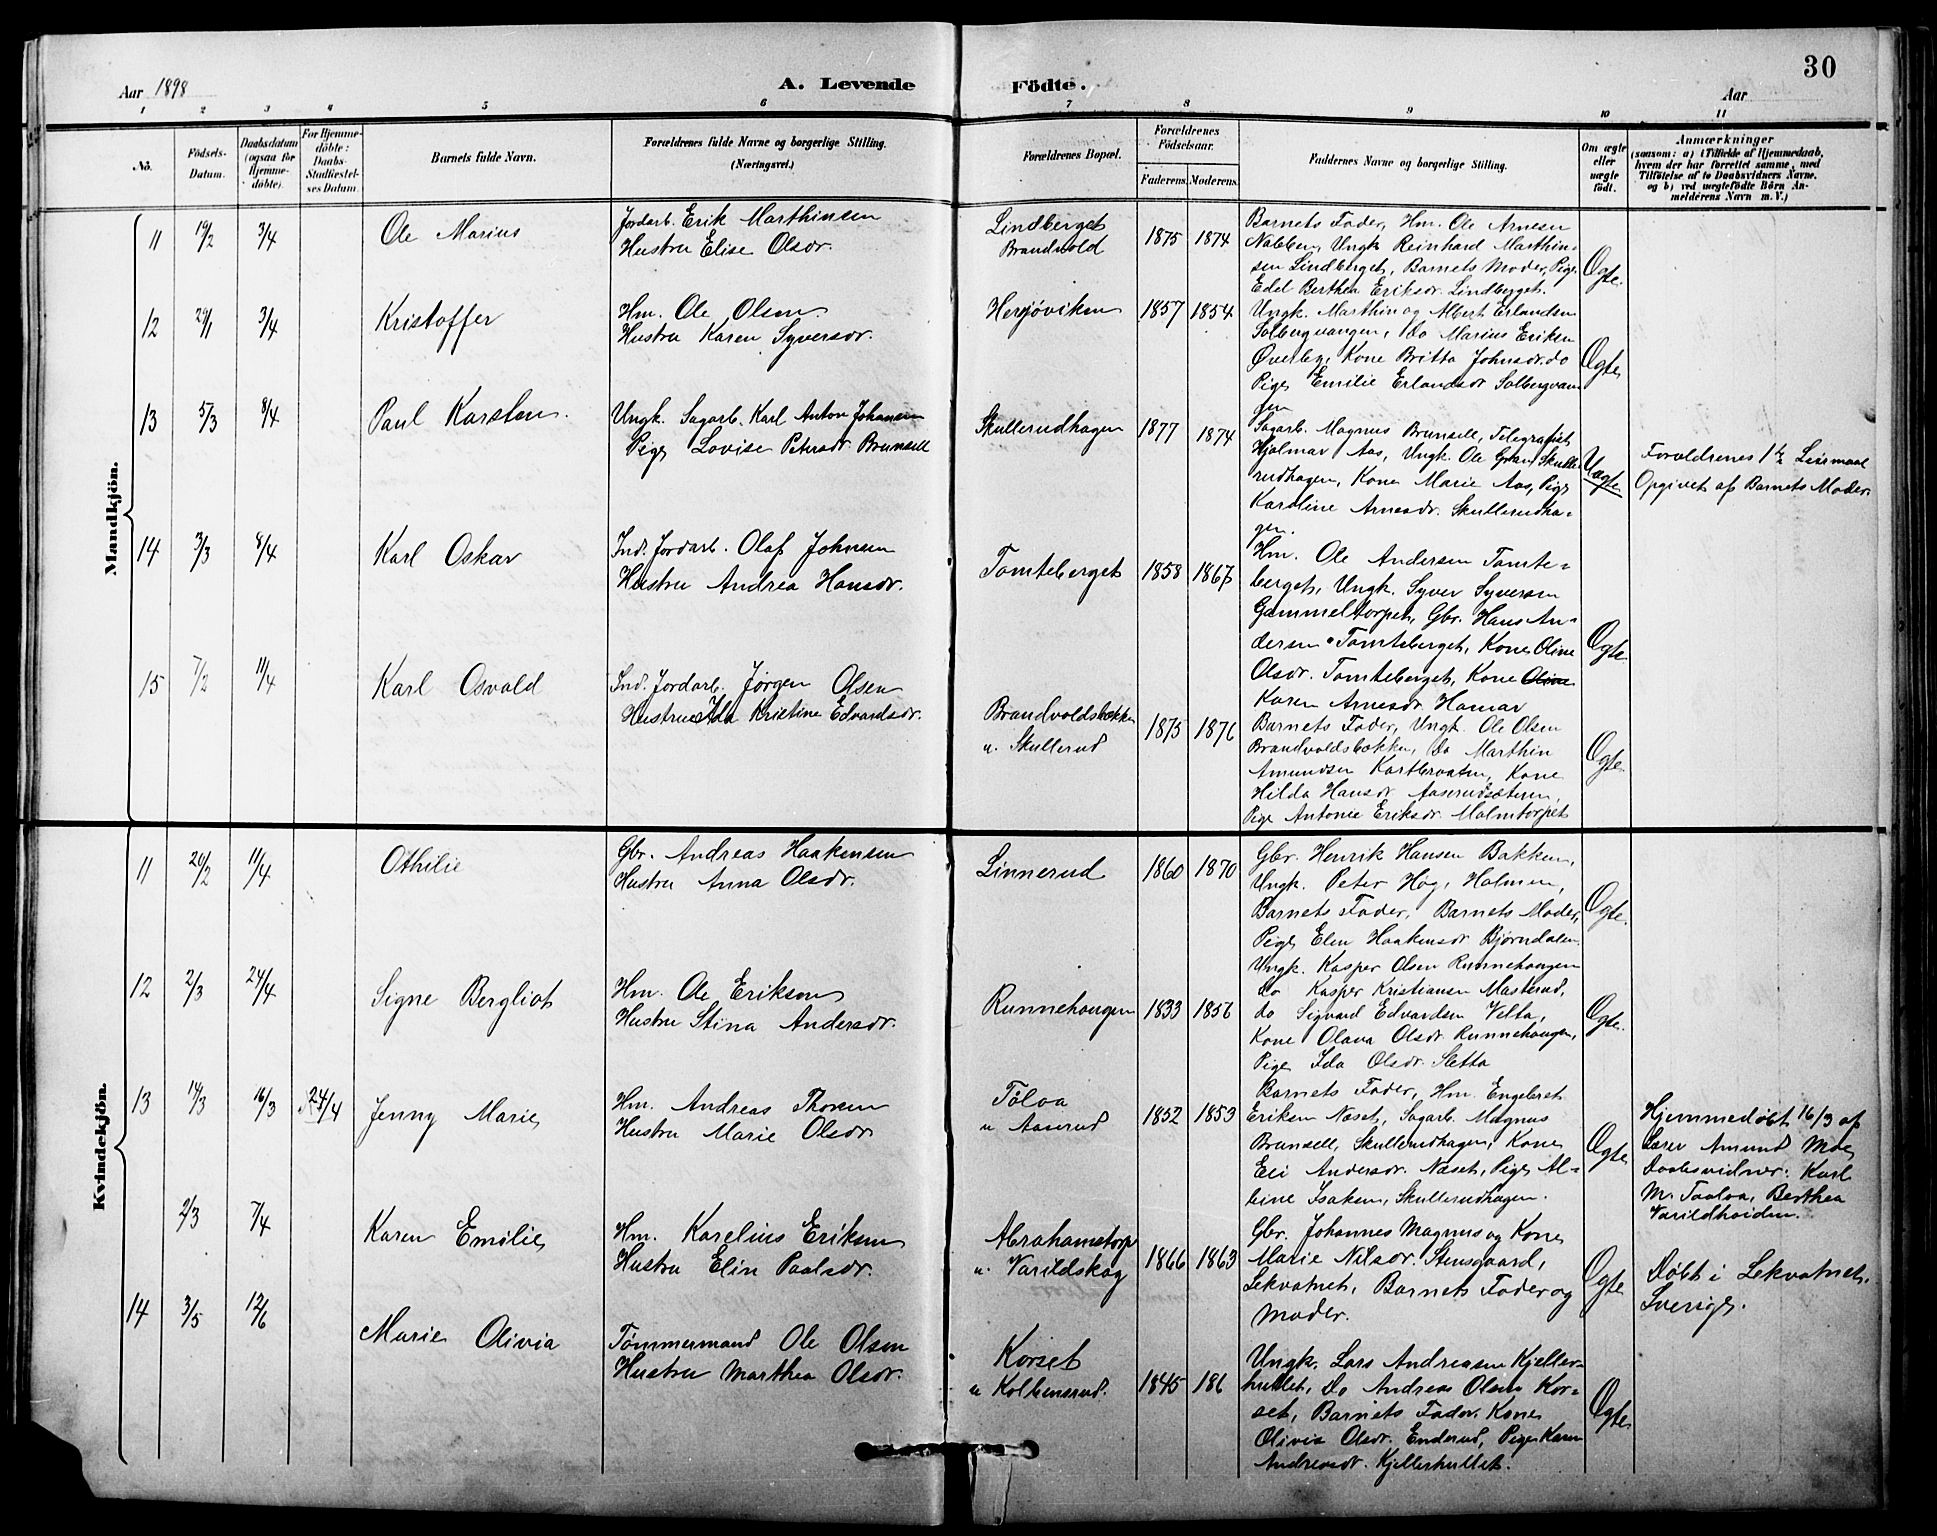 30
Aar 1898
A. Levende
Födte.
Aar
1 2 3 4 5 6 7 8 9 10 11
No.
Födsels-
Datum.
Daabsdatum
(ogsaa for
Hjemme-
döbte).
For Hjemme-
döbte:
Daabs-
Stadfæstel-
ses Datum.
Barnets fulde Navn.
Forældrenes fulde Navne og borgerlige Stilling.
(Næringsvei.)
Forældrenes Bopæl.
Forældrenes
Födselsaar.
Faderens. Moderens.
Faddernes Navne og borgerlige Stilling.
Om ægte
eller
uægte
födt.
Anmærkninger
(saasom: a) i Tilfælde af Hjemmedaab,
hvem der har forrettet samme, med
Tilföielse af to Daabsvidners Navne,
og b) ved uægtefödte Börn An-
melderens Navn m. V.)
Mandkjön.
11 19/2 3/4 Ole Marius
Jordarb. Erik Marthinsen
Hustru Elise Olsdr.
Lindberget
Brandvold
1875 1874
Barnets Fader, Hm. Ole Arnesen
Nabben, Ungk. Reinhard Marthin-
sen Lindberget, Barnets Moder, Pige
Edel Berthea Eriksdr. Lindberget.
Ægte.
12 29/1 3/4 Kristoffer
Hm. Ole Olsen
Hustru Karen Syversdr.
Hersjöviken
1857 1854
Ungk. Marthin og Albert Erlandsen
Solbergvangen, Do Marius Eriksen
Øverby, Kone Britta Johnsdr. do
Pige Emilie Erlandsdr Solbergvan
gen
Ægte
13 5/3 8/4 Paul Karsten.
Ungk. Sagarb. Karl Anton Johansen
Pige Lovise Petersdr Brunsell
Skullerudhagen
1877 1874
Sagarb. Magnus Brunsell, Telegrafist
Hjalmar Aas, Ungk. Ole Gran Skulle-
rudhagen, Kone Marie Aas, Pige
Karoline Arnesdr. Skullerudha-
gen.
Uægte
Forældrenes 1ste Leiermaal
Opgivet af Barnets Moder.
14 3/3 8/4 Karl Oskar
Ind. Jordarb. Olaf Johnsen
Hustru Andrea Hansdr.
Tomteberget
1858 1867
Hm. Ole Andersen Tomte-
berget, Ungk. Syver Syversen
Gammeltorpet, Gbr. Hans An-
dersen Tomteberget, Kone Oline
Olsdr. Tomteberget, Kone Oline
Karen Arnesdr. Hamar
Ægte.
15 7/2 11/4 Karl Osvald
Ind. Jordarb. Jørgen Olsen
Hustru Ida Kristine Edvardsdr.
Brandvoldsbækken
u. Skullerud
1875 1876
Barnets Fader, Ungk. Ole Olsen
Brandvoldsbækken, Do Marthin
Amundsen Kartbraaten, Kone
Hilda Hansdr Aaserudsæteren,
Pige Antonie Eriksdr. Malmtorpet
Ægte.
Kvindekjön.
11 20/2 11/4 Othilie
Gbr. Andreas Haakensen
Hustru Anna Olsdr.
Linnerud
1860 1870
Gbr. Henrik Hansen Bakken,
Ungk. Peter Hag, Holmen,
Barnets Fader, Barnets Moder,
Pige Elen Haakensdr Bjørndalen.
Ægte.
12 2/3 24/4 Signe Bergliot
Hm. Ole Eriksen
Hustru Stina Andersdr.
Runnehaugen
1833 1856
Ungk. Kasper Olsen Runnehaugen
do Kasper Kristiansen Masterud,
do Sigvard Edvardsen Velta,
Kone Olava Olsdr. Runnehaugen,
Pige Ida Olsdr. Sletta
Ægte.
13 14/3 16/3 24/4 Jenny Marie
Hm. Andreas Thoresen
Hustru Marie Olsdr
Tölva
u Aaserud
1852 1853
Barnets Fader, Hm. Engebret
Eriksen Næset, Sagarb. Magnus
Brunsell, Skullerudhagen, Kone
Eli Andersdr. Næset, Pige Al-
bine Isaksen, Skullerudhagen.
Ægte
Hjemmedöbt 16/3 af
Lærer Amund Moe
Daabsvidner: Karl
M. Taalva, Berthea
Varildheiden.
2/3 7/4 Karen Emilie
Hm. Karelius Eriksen
Hustru Elin Paalsdr.
Abrahamstorp
u. Varildskog
1866 1863
Gbr. Johannes Magnus og Kone
Marie Nilsdr. Stensgaard,
Lekvatnet, Barnets Fader og
Moder.
Ægte
Döbt i Lekvatnet,
Sverige.
14 3/5 12/6 Marie Olivia
Tömmermand Ole Olsen
Hustru Marthea Olsdr.
Korset
u Kolbenerud.
1845 186
Ungk. Lars Andreasen Kjeller-
hullet, Do Andreas Olsen Kor-
set, Barnets Fader, Kone
Olivia Olsdr. Enderud, Pige Karen
Andreasdr. Kjellerhullet.
Ægte